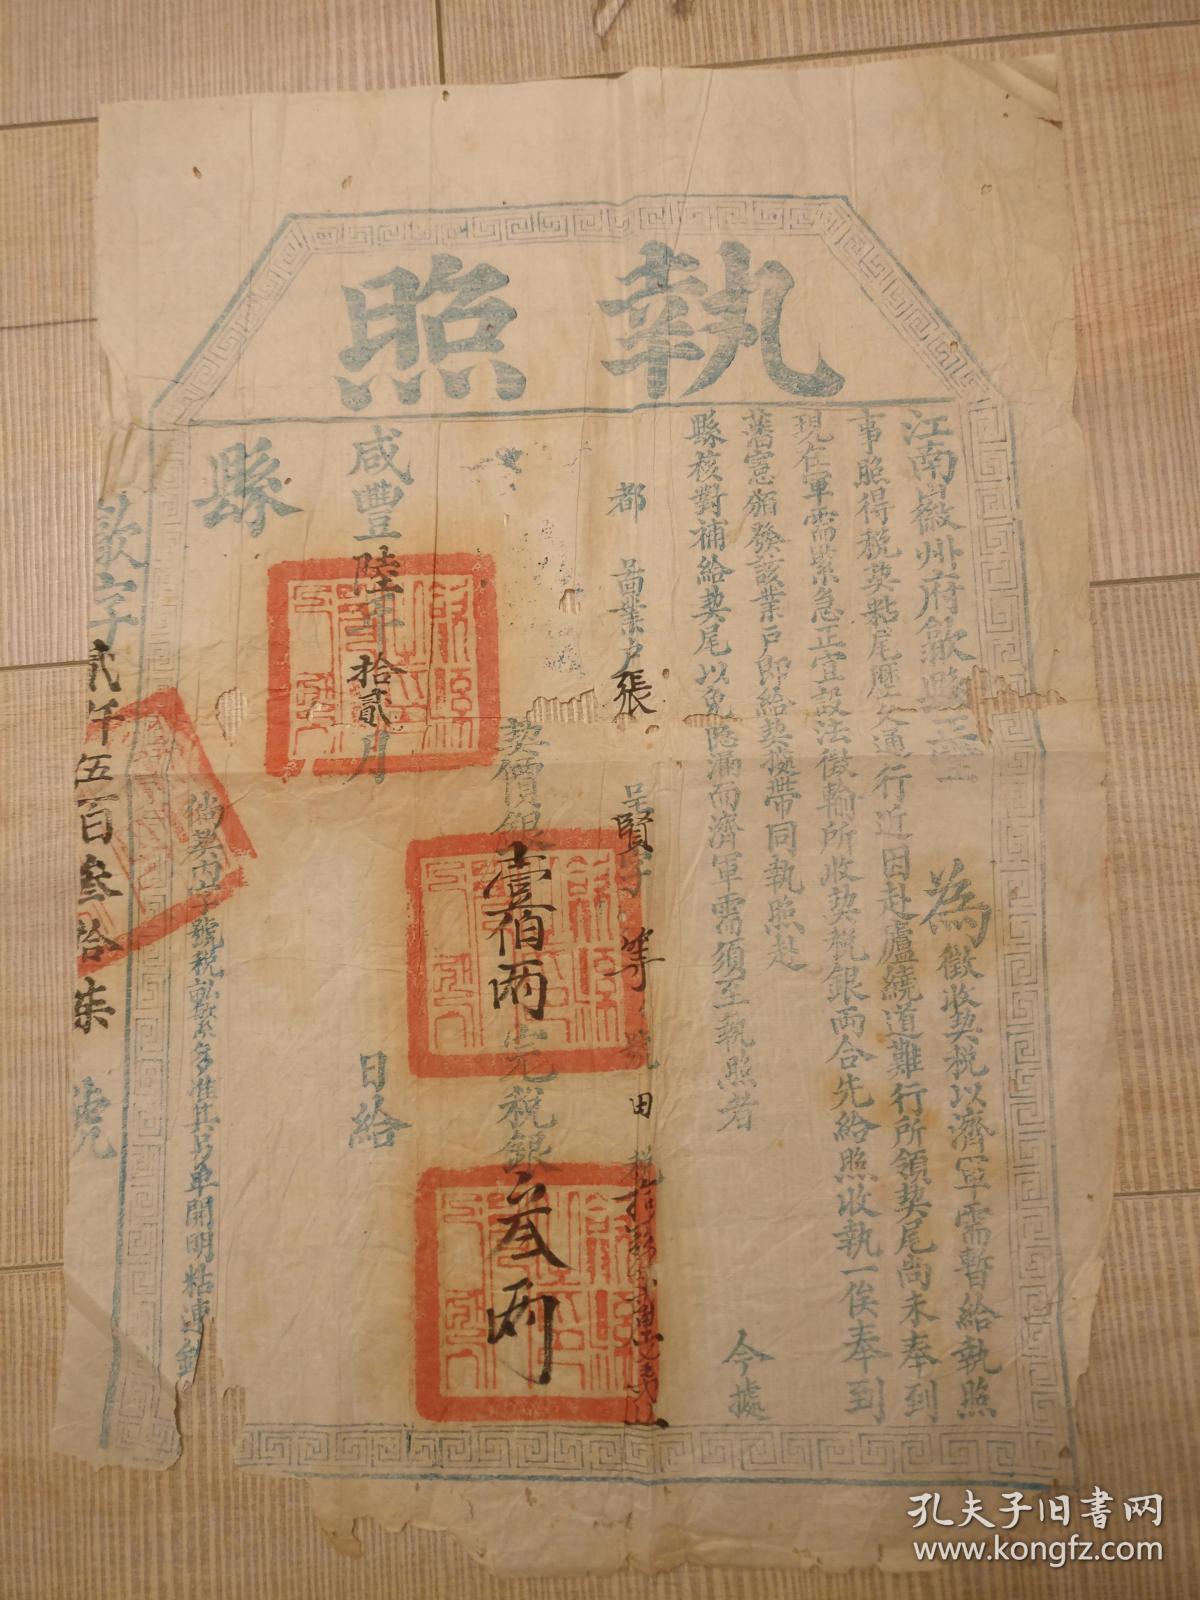 執照
江南徽州府歙縣正堂 為徵收契税以濟軍需暫給執照
事照得税契粘尾歷久通行近因赴廬繞道難行所領契尾尚未奉到
現在軍需緊急正宜設法徵輸所收契税銀兩合先給照收執一俟奉到
藩憲頒發該業戶即給契㨿帶同執照赴
縣核對補給契尾以免隐漏而濟軍需須至執照者 今據
都 啚業戶張 呈賢字 等 號 田 税
契價銀壹佰兩 完税銀叁兩
咸豐陸年拾貳月 日給
縣
倘契内字號税畝繁多准其另單開明粘連
歙字貳仟伍百叁拾柒號
孔夫子旧书网
www.kongfz.com